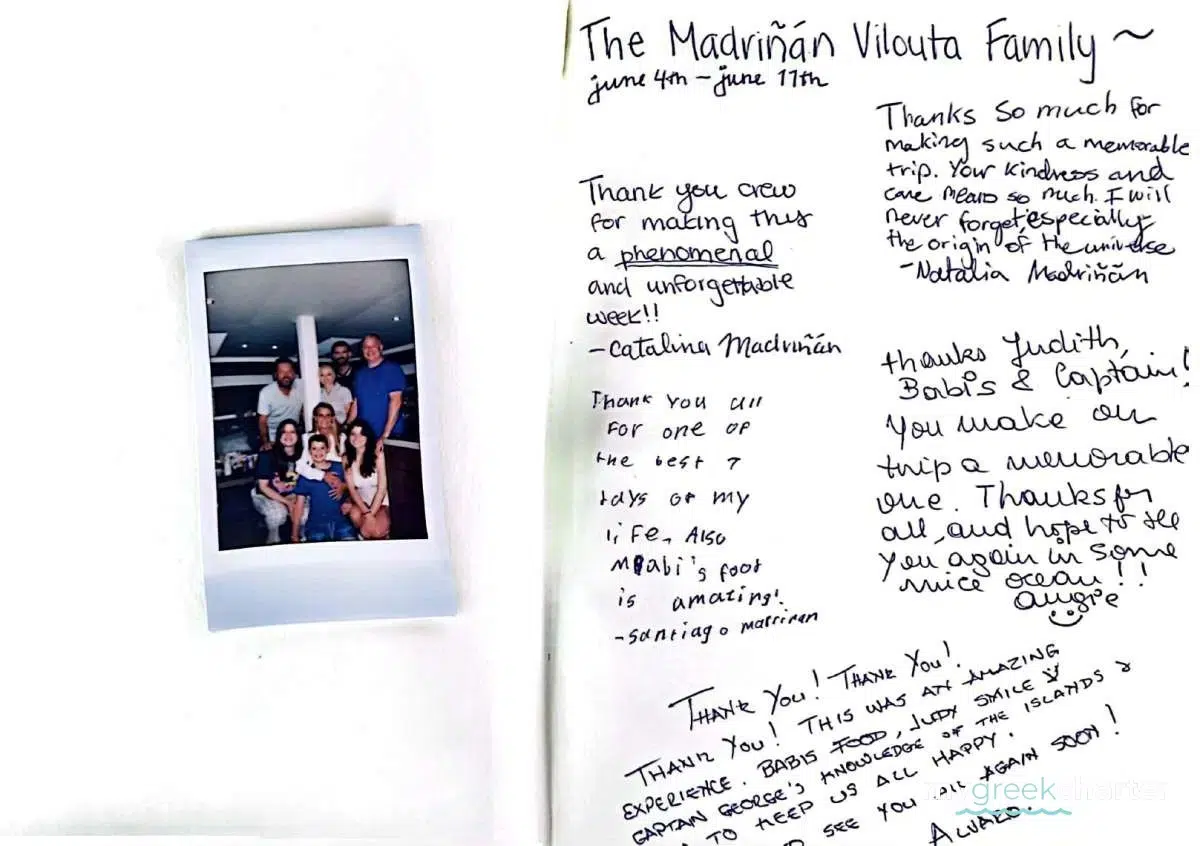 The Madriñán Vilouta Family ~
june 4th - june 11th
Thank you crew
for making this
a phenomenal
and unforgettable
week!!
-Catalina Madriñán
Thank you all
for one of
the best 7
days of my
life, Also
Babi's foot
is amazing!
-Santiago
Thanks so much for
making such a memorable
trip. Your kindness and
care means so much. I will
never forget, especially
the origin of the universe
-Natalia Madriñán
thanks Judith,
Babis & Captain!
You make our
trip a memorable
one. Thanks for
all, and hope to see
you again in some
nice ocean!!
Angie
THANK YOU! THANK YOU!
THANK YOU! THIS WAS AN AMAZING
EXPERIENCE. BABIS FOOD, JUDY SMILE &
CAPTAIN GEORGE'S KNOWLEDGE OF THE ISLANDS &
TO KEEP US ALL HAPPY.
SEE YOU ALL AGAIN SOON!
ALVARO.
mygreekcharter